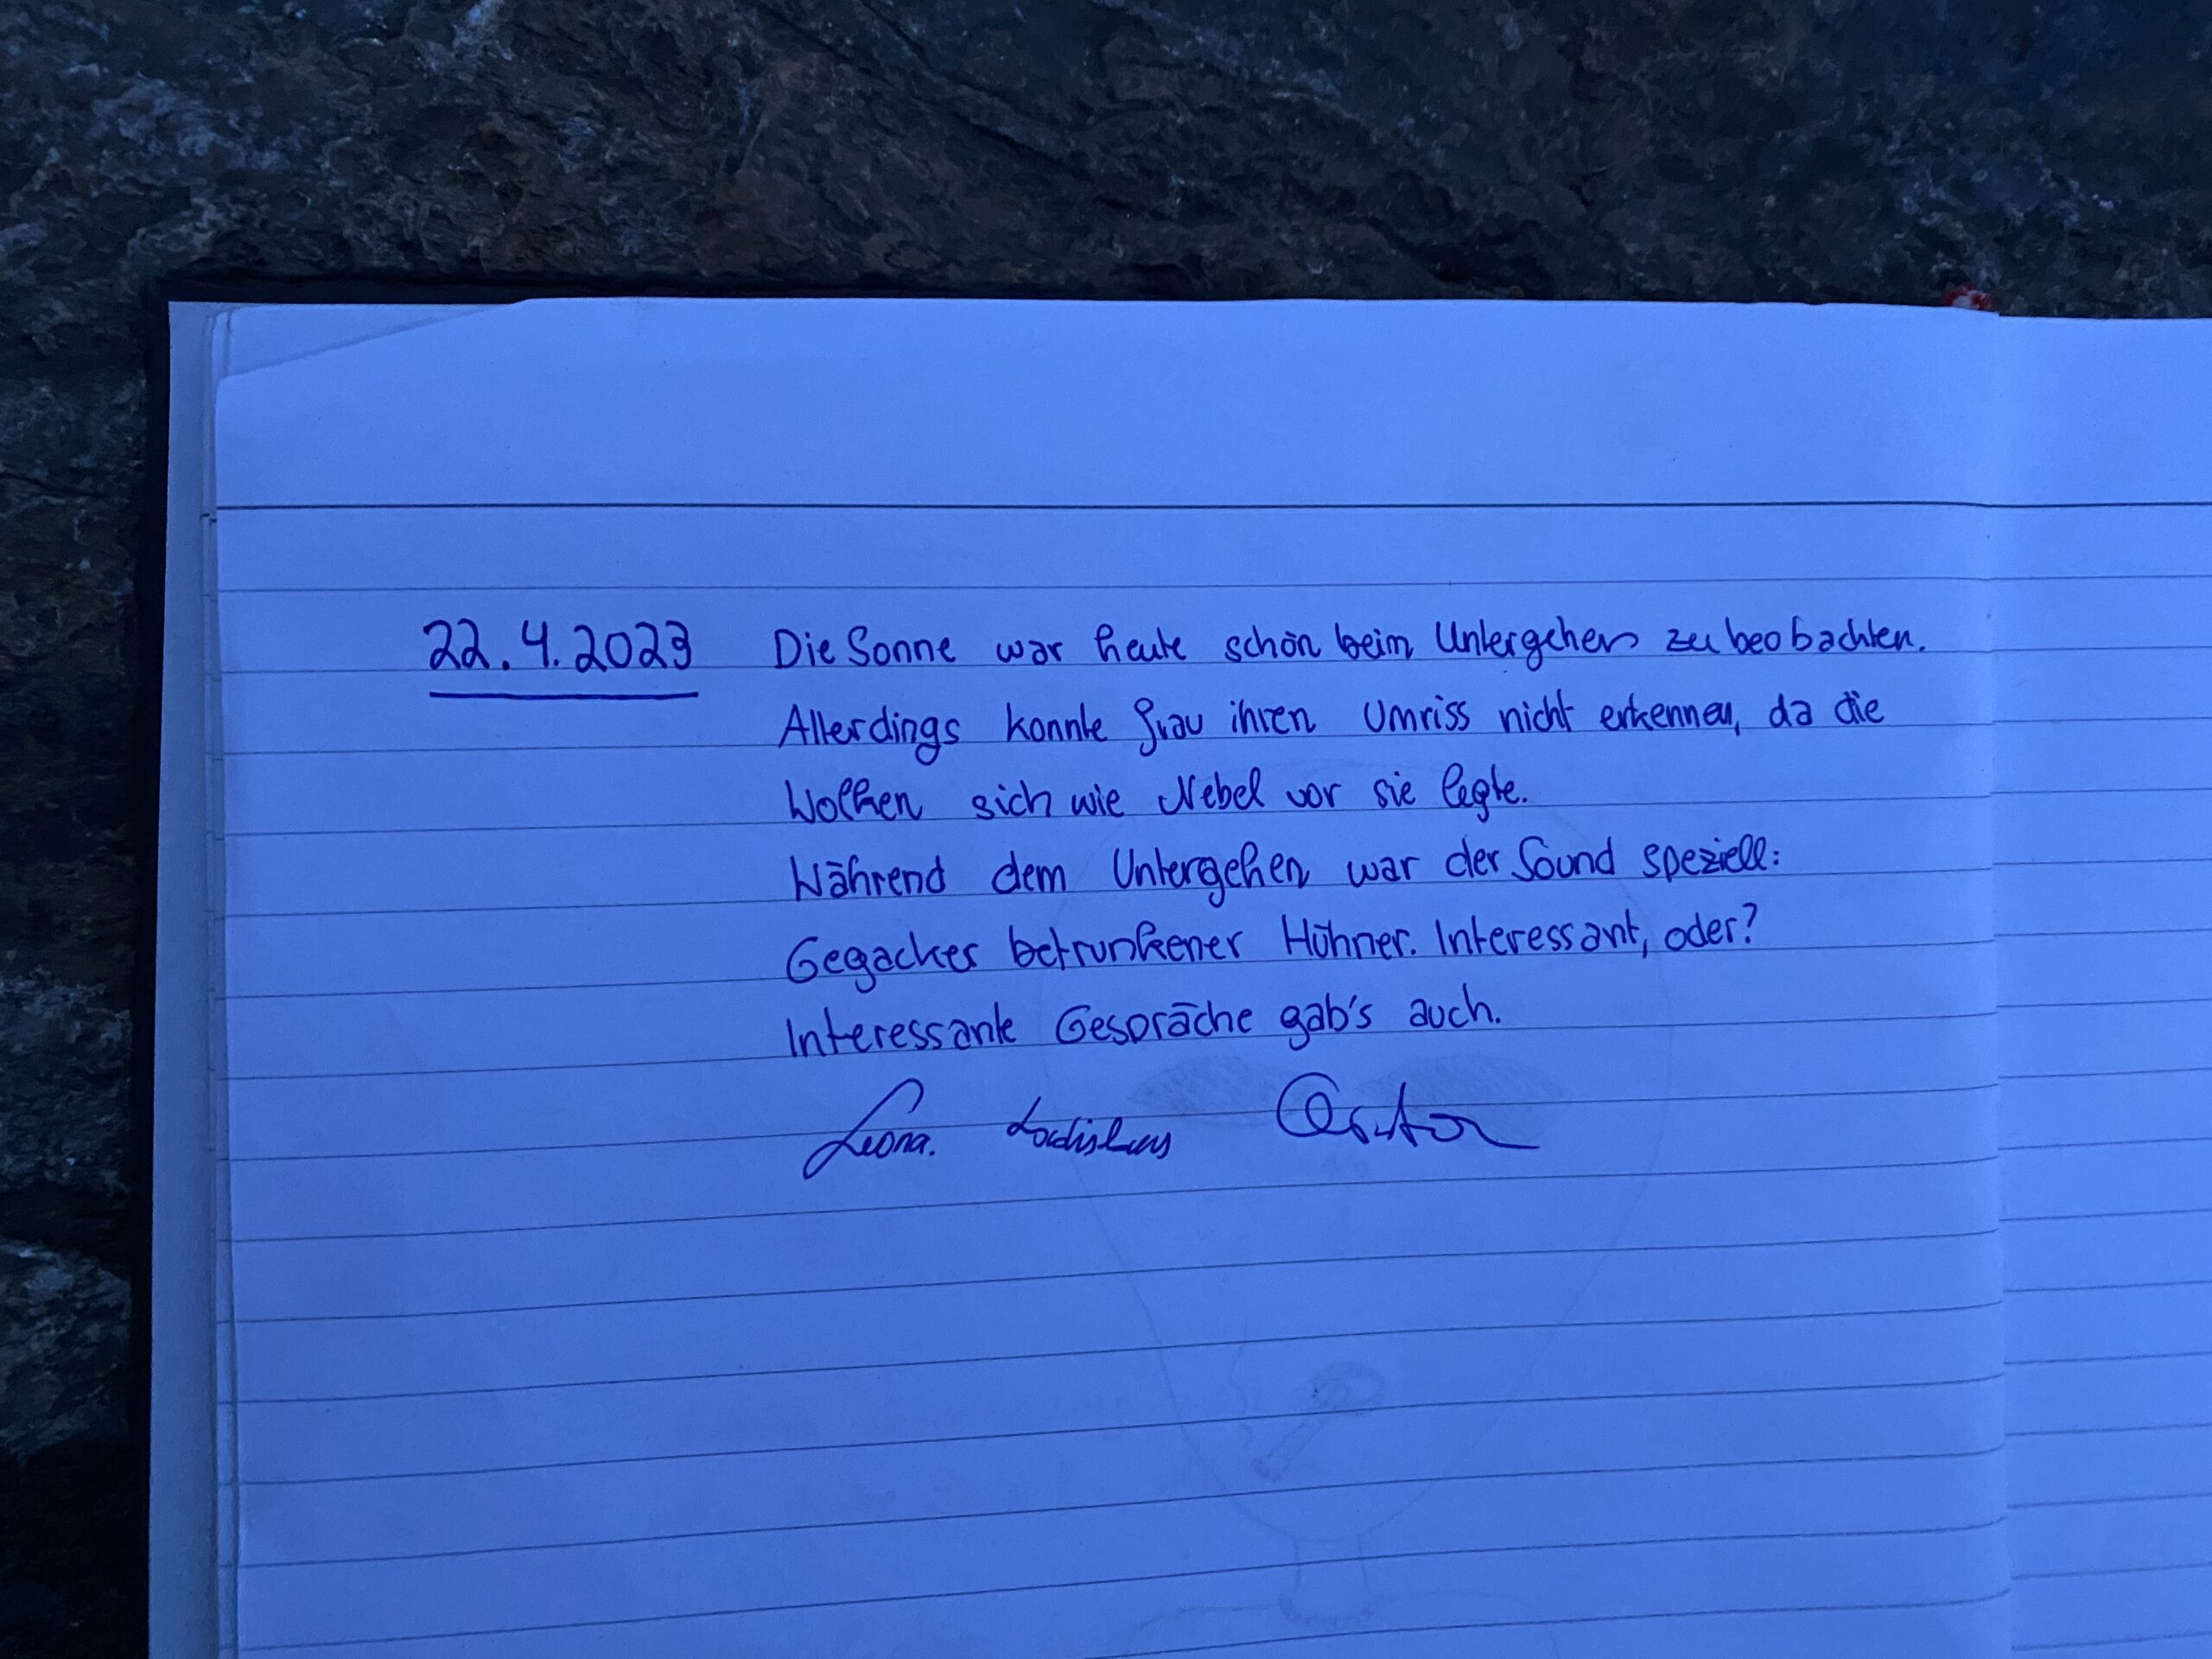 22.4.2023 Die Sonne war heute schön beim Untergehen zu beobachten.
Allerdings konnte frau ihren Umriss nicht erkennen, da die
Wolken sich wie Nebel vor sie legte.
Während dem Untergehen war der Sound speziell:
Gegacker betrunkener Hühner. Interessant, oder?
Interessante Gespräche gab's auch.
Leona. Ladislaus